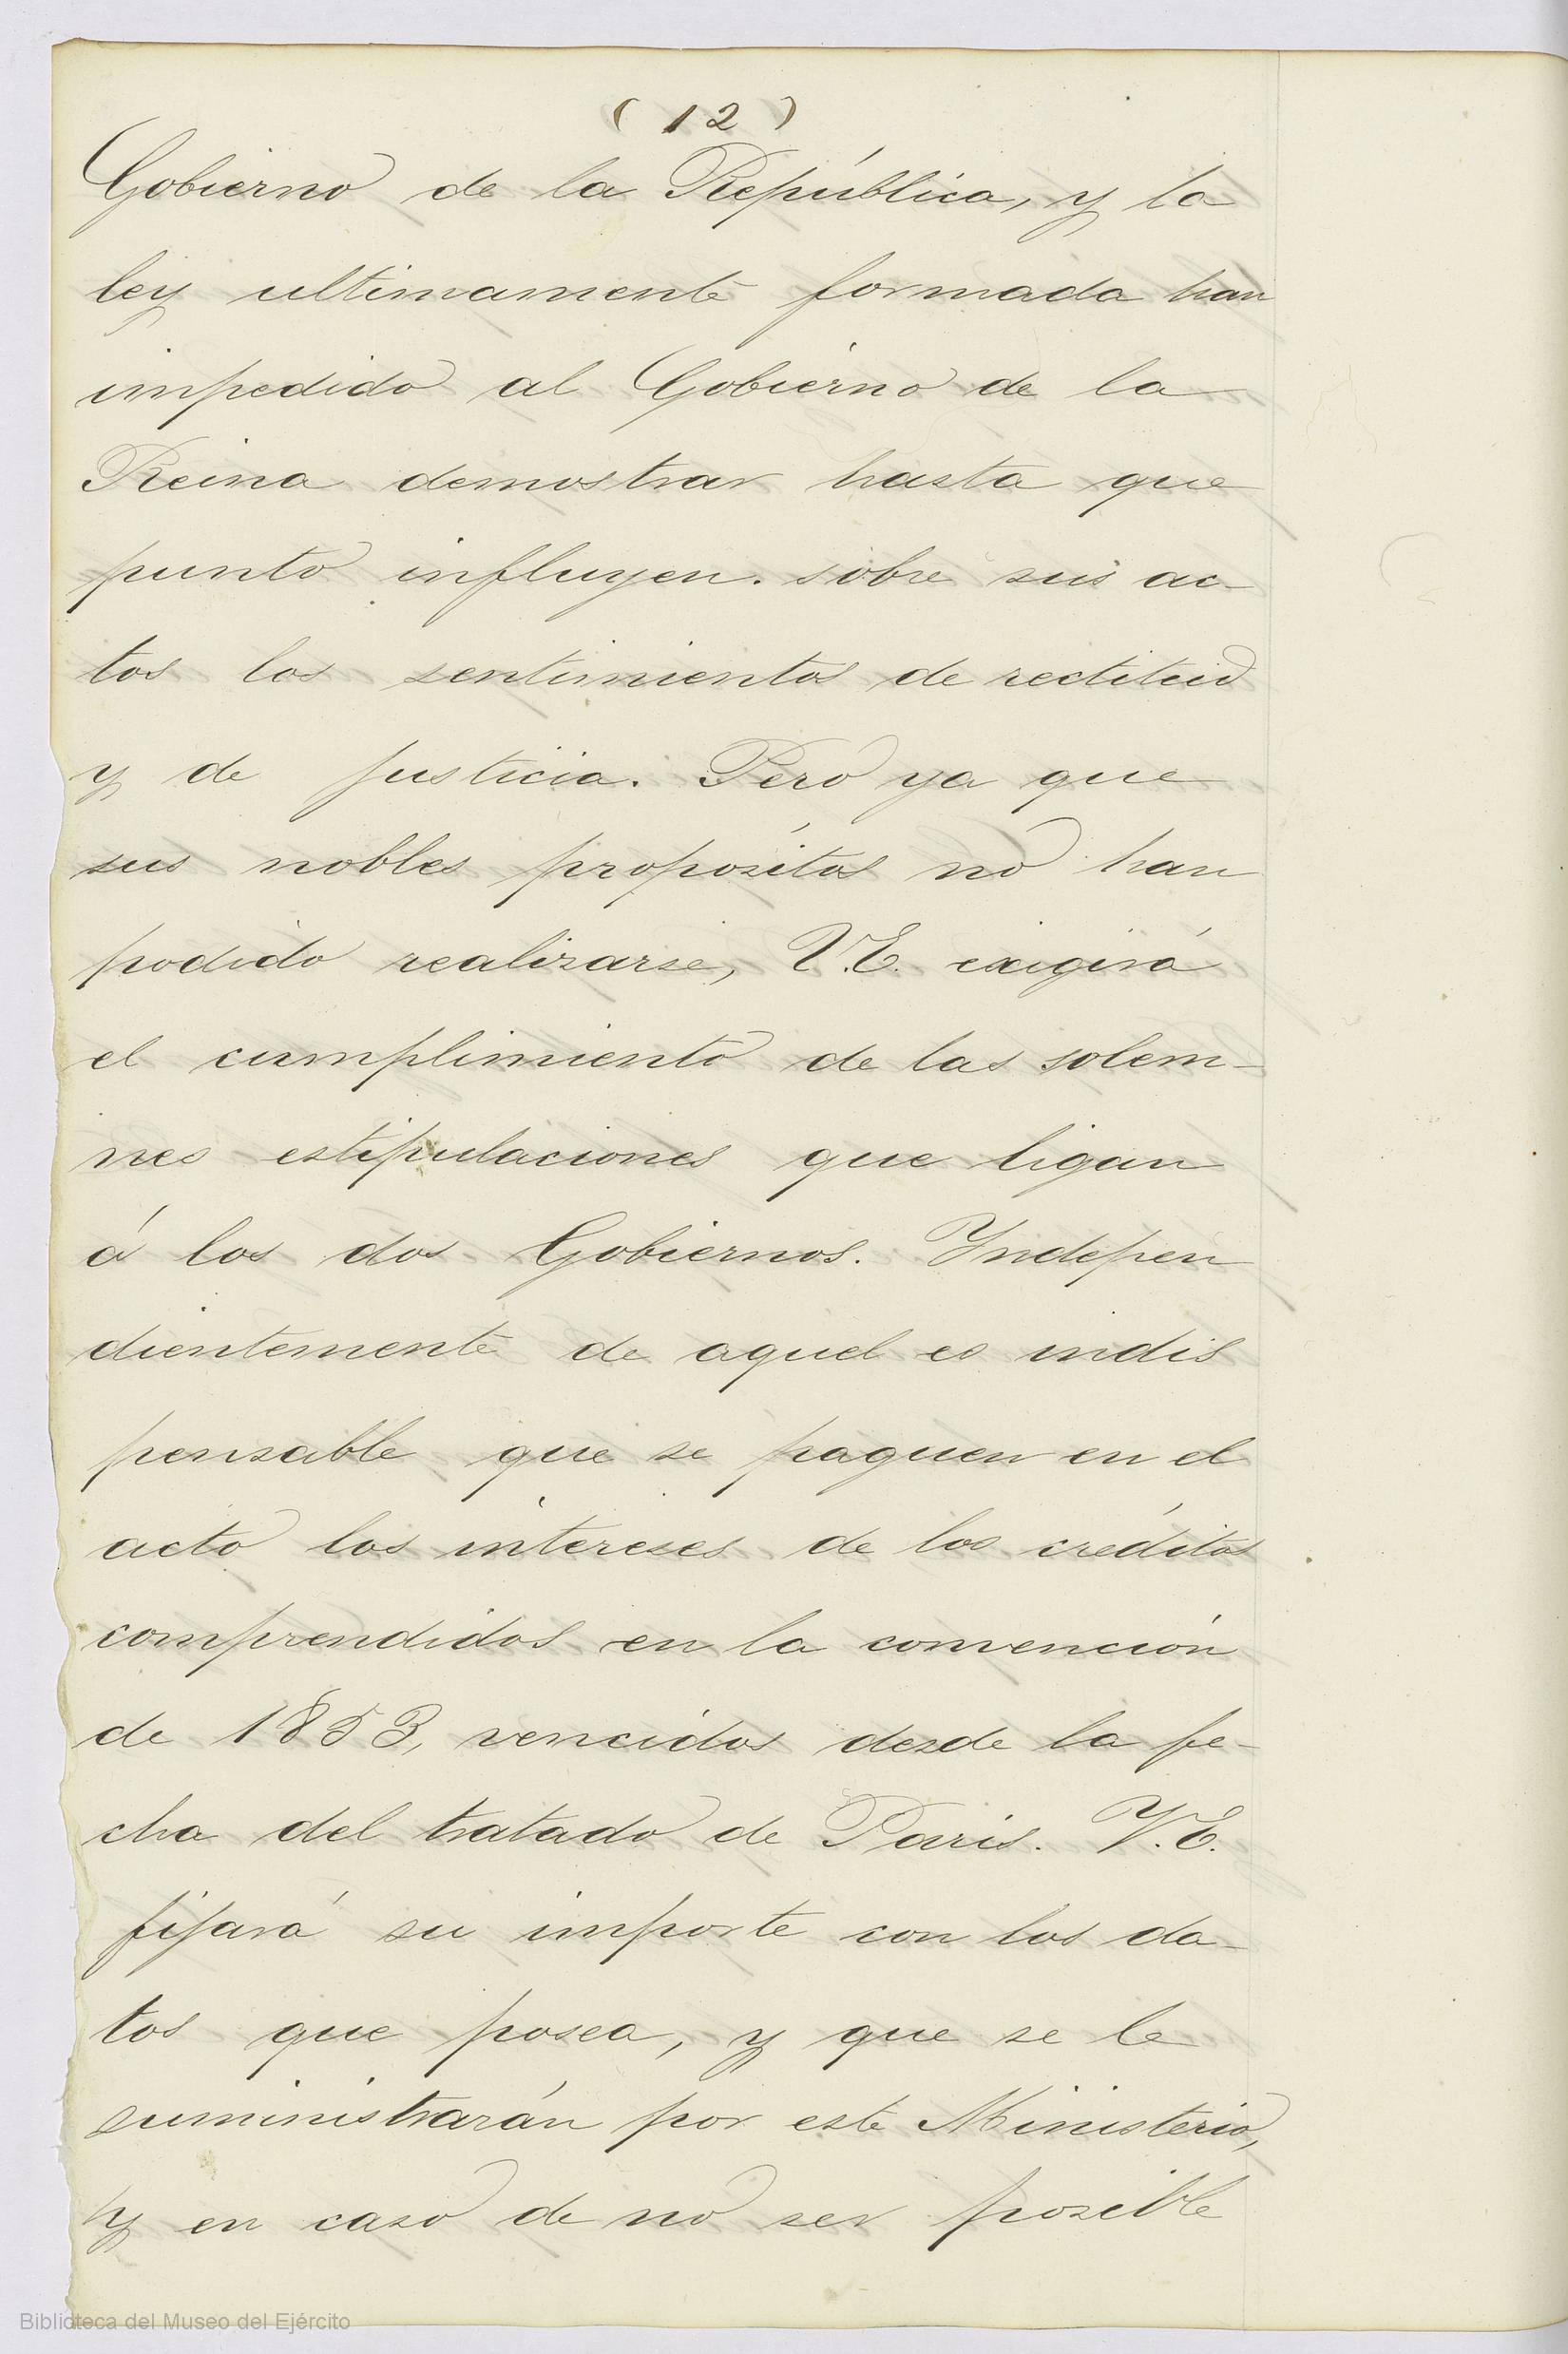 (12)
Gobierno de la República, y la
ley ultimamente formada han
impedido al Gobierno de la
Reina demostrar hasta que
punto influyen. sobre sus ac-
tos los sentimientos de rectitud
y de justicia. Pero ya que
sus nobles propósitos no han
podido realizarse, V.E. exigirá
el cumplimiento de las solem-
nes estipulaciones que ligan
á los dos Gobiernos. Indepen
dientemente de aquel es indis
pensable que se paguen en el
acto los intereses de los créditos
comprendidos en la convención
de 1853, vencidos desde la fe-
cha del tratado de Paris. V.E.
fijará su importe con los da-
tos que posea, y que se le
suministrarán por este Ministerio,
y en caso de no ser posible
Biblioteca del Museo del Ejército